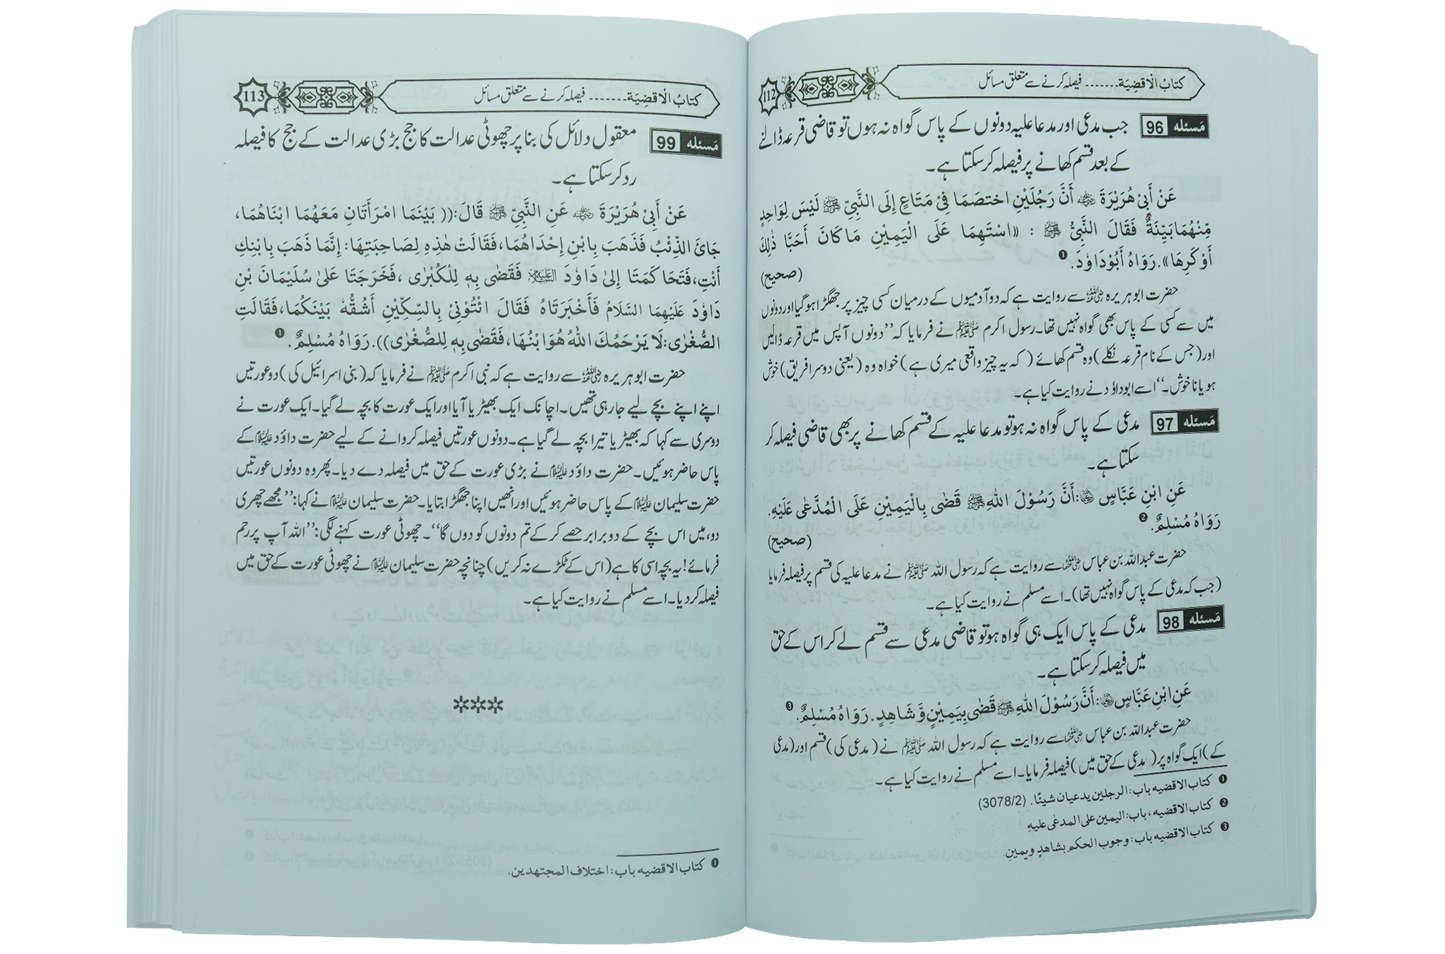 كتابُ الْاقضِيَة....... فیصلہ کرنے سے متعلق مسائل
112
مَسئله 96 جب مدعی اور مدعا علیہ دونوں کے پاس گواہ نہ ہوں تو قاضی قرعہ ڈالنے
کے بعد قسم کھانے پر فیصلہ کر سکتا ہے۔
عَنْ اَبِىْ هُرَيْرَةَ ﷺ أَنَّ رَجُلَيْنِ اخْتَصَمَا فِىْ مَتَاعٍ إِلَى النَّبِىِّ ﷺ لَيْسَ لِوَاحِدٍ
مِّنْهُمَا بَيِّنَةٌ فَقَالَ النَّبِىُّ ﷺ : «اسْتَهِمَا عَلَى الْيَمِيْنِ مَا كَانَ أَحَبَّا ذٰلِكَ
أَوْ كَرِهَا». رَوَاهُ أَبُوْدَاوٗدَ. ❶
(صحیح)
حضرت ابو ہریرہ رضی اللہ عنہ سے روایت ہے کہ دو آدمیوں کے درمیان کسی چیز پر جھگڑا ہو گیا اور دونوں
میں سے کسی کے پاس بھی گواہ نہیں تھا۔ رسول اکرم ﷺ نے فرمایا کہ ’’دونوں آپس میں قرعہ ڈالیں
اور (جس کے نام قرعہ نکلے) وہ قسم کھائے (کہ یہ چیز واقعی میری ہے) خواہ وہ (یعنی دوسرا فریق) خوش
ہو یا ناخوش۔‘‘ اسے ابوداؤد نے روایت کیا ہے۔
مَسئله 97 مدعی کے پاس گواہ نہ ہو تو مدعا علیہ کے قسم کھانے پر بھی قاضی فیصلہ کر
سکتا ہے۔
عَنِ ابْنِ عَبَّاسٍ : أَنَّ رَسُوْلَ اللهِ ﷺ قَضٰى بِالْيَمِيْنِ عَلَى الْمُدَّعٰى عَلَيْهِ.
رَوَاهُ مُسْلِمٌ. ❷
(صحیح)
حضرت عبداللہ بن عباس رضی اللہ عنہما سے روایت ہے کہ رسول اللہ ﷺ نے مدعا علیہ کی قسم پر فیصلہ فرمایا
(جب کہ مدعی کے پاس گواہ نہیں تھا)۔ اسے مسلم نے روایت کیا ہے۔
مَسئله 98 مدعی کے پاس ایک ہی گواہ ہو تو قاضی مدعی سے قسم لے کر اس کے حق
میں فیصلہ کر سکتا ہے۔
عَنِ ابْنِ عَبَّاسٍ : أَنَّ رَسُوْلَ اللهِ ﷺ قَضٰى بِيَمِيْنٍ وَّ شَاهِدٍ. رَوَاهُ مُسْلِمٌ. ❸
حضرت عبداللہ بن عباس رضی اللہ عنہما سے روایت ہے کہ رسول اللہ ﷺ نے (مدعی کی) قسم اور (مدعی
کے) ایک گواہ پر (مدعی کے حق میں) فیصلہ فرمایا۔ اسے مسلم نے روایت کیا ہے۔
❶ كتاب الاقضيه باب: الرجلين يدعيان شيئًا. (3078/2)
❷ كتاب الاقضيه، باب: اليمين على المدعٰى عليهِ
❸ كتاب الاقضيه باب: وجوب الحكم بشاهدٍ ويمينٍ
كتابُ الْاقضِيَة....... فیصلہ کرنے سے متعلق مسائل
113
مَسئله 99 معقول دلائل کی بنا پر چھوٹی عدالت کا جج بڑی عدالت کے جج کا فیصلہ
رد کر سکتا ہے۔
عَنْ أَبِىْ هُرَيْرَةَ عَنِ النَّبِىِّ ﷺ قَالَ: ((بَيْنَمَا امْرَأَتَانِ مَعَهُمَا ابْنَاهُمَا،
جَائَ الذِّئْبُ فَذَهَبَ بِابْنِ إِحْدَاهُمَا، فَقَالَتْ هٰذِهٖ لِصَاحِبَتِهَا: إِنَّمَا ذَهَبَ بِابْنِكِ
أَنْتِ، فَتَحَاكَمَتَا إِلىٰ دَاوٗدَ ؑ فَقَضٰى بِهٖ لِلْكُبْرٰى ، فَخَرَجَتَا عَلىٰ سُلَيْمَانَ بْنِ
دَاوٗدَ عَلَيْهِمَا السَّلَامُ فَأَخْبَرَتَاهُ فَقَالَ ائْتُوْنِىْ بِالسِّكِّيْنِ أَشُقُّهٗ بَيْنَكُمَا، فَقَالَتِ
الصُّغْرٰى: لَا يَرْحَمُكَ اللهُ هُوَ ابْنُهَا، فَقَضٰى بِهٖ لِلصُّغْرٰى)). رَوَاهُ مُسْلِمٌ. ❶
حضرت ابو ہریرہ رضی اللہ عنہ سے روایت ہے کہ نبی اکرم ﷺ نے فرمایا کہ (بنی اسرائیل کی) دو عورتیں
اپنے اپنے بچے لیے جا رہی تھیں۔ اچانک ایک بھیڑیا آیا اور ایک عورت کا بچہ لے گیا۔ ایک عورت نے
دوسری سے کہا کہ بھیڑیا تیرا بچہ لے گیا ہے۔ دونوں عورتیں فیصلہ کروانے کے لیے حضرت داؤد علیہ السلام کے
پاس حاضر ہوئیں۔ حضرت داؤد علیہ السلام نے بڑی عورت کے حق میں فیصلہ دے دیا۔ پھر وہ دونوں عورتیں
حضرت سلیمان علیہ السلام کے پاس حاضر ہوئیں اور انھیں اپنا جھگڑا بتایا۔ حضرت سلیمان علیہ السلام نے کہا: ’’مجھے چھری
دو، میں اس بچے کے دو برابر حصے کر کے تم دونوں کو دوں گا‘‘۔ چھوٹی عورت کہنے لگی: ’’اللہ آپ پر رحم
فرمائے! یہ بچہ اسی کا ہے (اس کے ٹکڑے نہ کریں) چنانچہ حضرت سلیمان علیہ السلام نے چھوٹی عورت کے حق میں
فیصلہ کر دیا۔ اسے مسلم نے روایت کیا ہے۔
***
❶ كتاب الاقضيه باب: اختلاف المجتهدين.